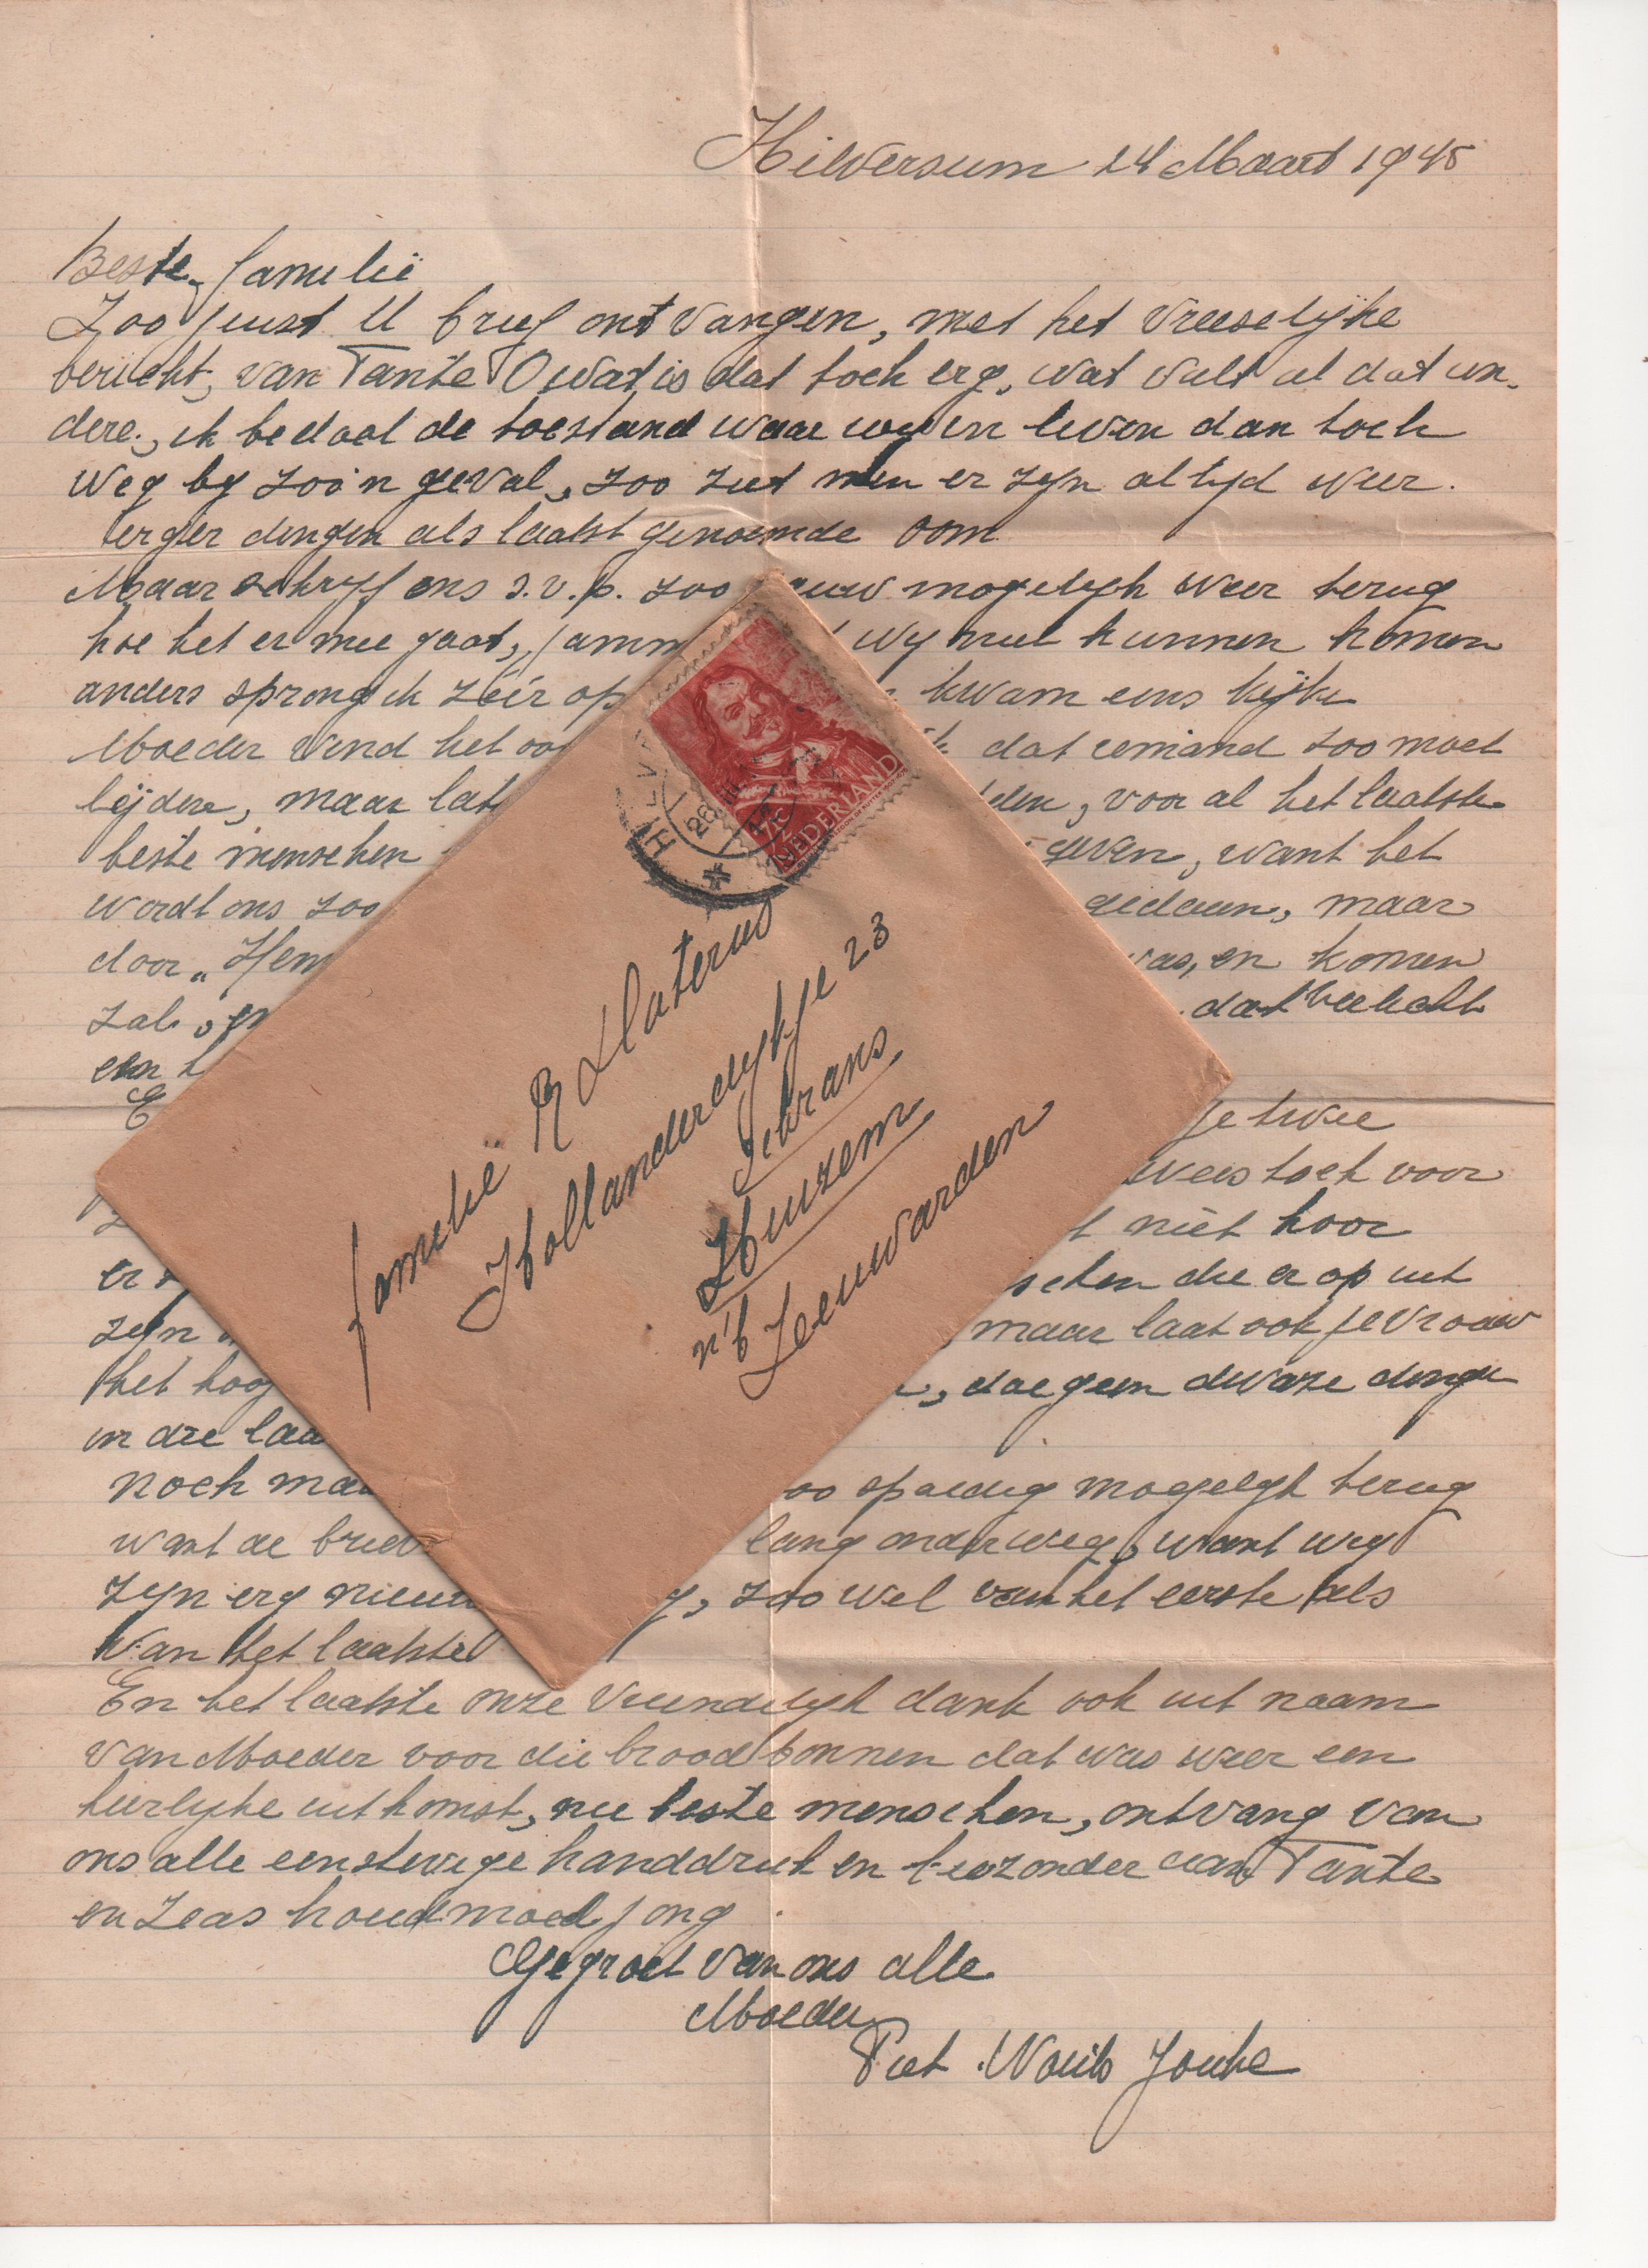 Hilversum 24 Maart 1945
Beste familië
Zoo juist U brief ontvangen, met het vreeselijke
bericht, van Tante O wat is dat toch erg, wat valt al dat an-
dere, ik bedoel de toestand waar wij in leven dan toch
weg by zoo'n geval, zoo ziet men er zijn altijd weer
erger dingen als laatst genoemde oom
Maar schryf ons s.v.p. zoo gauw mogelijk weer terug
hoe het er mee gaat, jamm wy niet kunnen komen
anders sprong ik zéér op kwam eens kijke
Moeder vind het oo dat iemand zoo moet
lijdere, maar late voor al het laatste
beste menschen geven, want het
wordt ons zoo gedaan, maar
door „Hem was, en komen
zal, en dat wellicht
een
E je twee
weis toch voor
niet hoor
er schen die er op uit
zijn maar laat ook je vrouw
het hoof doe geen dwaze dinge
in die laa
noch maa oo spoedig mogelijk terug
want de briev lang onderweg, want wij
zijn erg nieuw g, zoo wel van het eerste als
van het laatste
En het laatste onze vriendelijk dank ook uit naam
van Moeder voor die broodbonnen dat was weer een
heerlijke uitkomst, nu beste menschen, ontvang van
ons alle een stevige handdruk en biezonder aan Tante
en Zeas houd moed jong
Gegroet van ons alle
Moeder
Piet Wouib Jouke
HILV
26 III
7½ C
NEDERLAND
familië R Slaterus
Hollanderdykje 23
Schrans
Huizem
n/b Leeuwarden